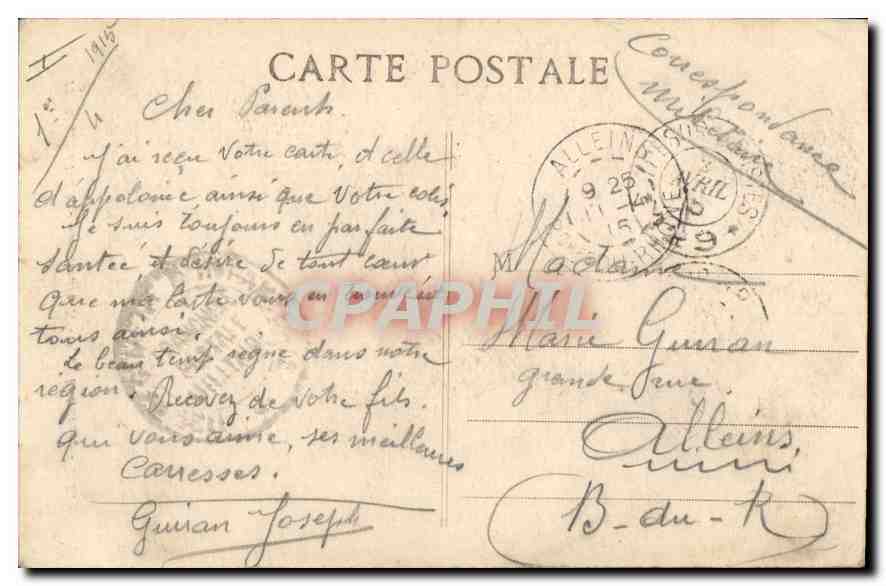 CARTE POSTALE
Correspondance
militaire
1er 4 1915
Cher Parents
J'ai reçu votre carte, et celle
d'appolonie, ainsi que votre colis,
Je suis toujours en parfaite
santée et désire de tout cœur
que ma carte vous en trouve
tous ainsi.
Le beau temp regne dans notre
region. Recevez de votre fils.
qui vous aime, ses meilleures
Carresses.
Guiran Joseph
ALLEINS
9 25
15
AVRIL
9
CPAPHIL
Madame
Marie Guiran
grande rue
Alleins
B-du-R